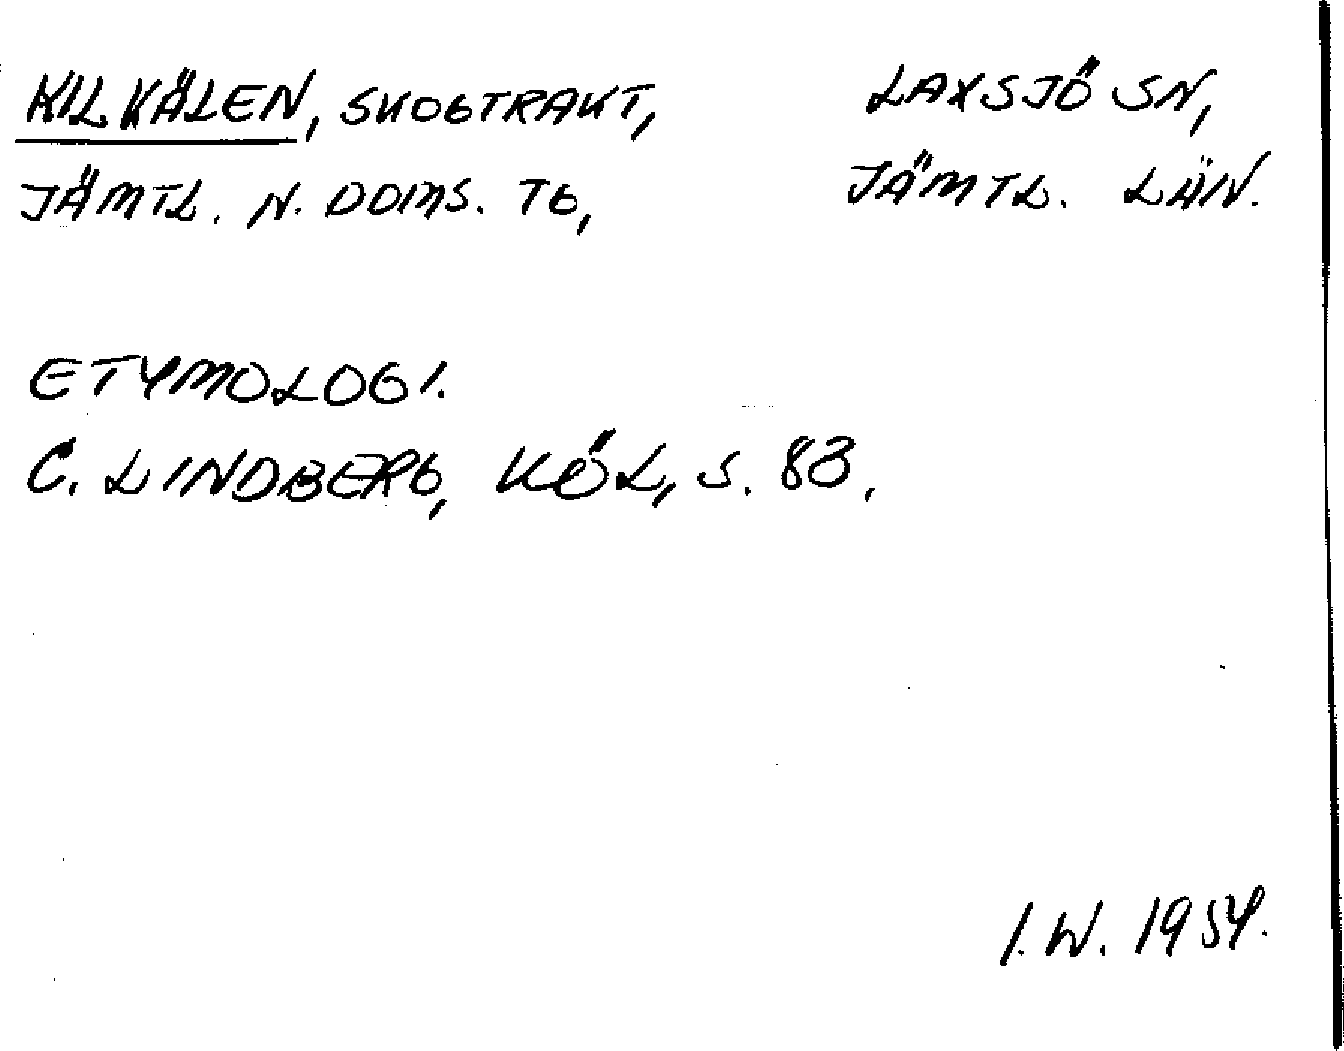 KILKÄLEN, SKOGTRAKT, LAXSJÖ SN,
JÄMTL. N. DOMS. TG, JÄMTL. LÄN.
ETYMOLOGI.
C. LINDBERG, KÖL, S. 83.
I.W. 1954.